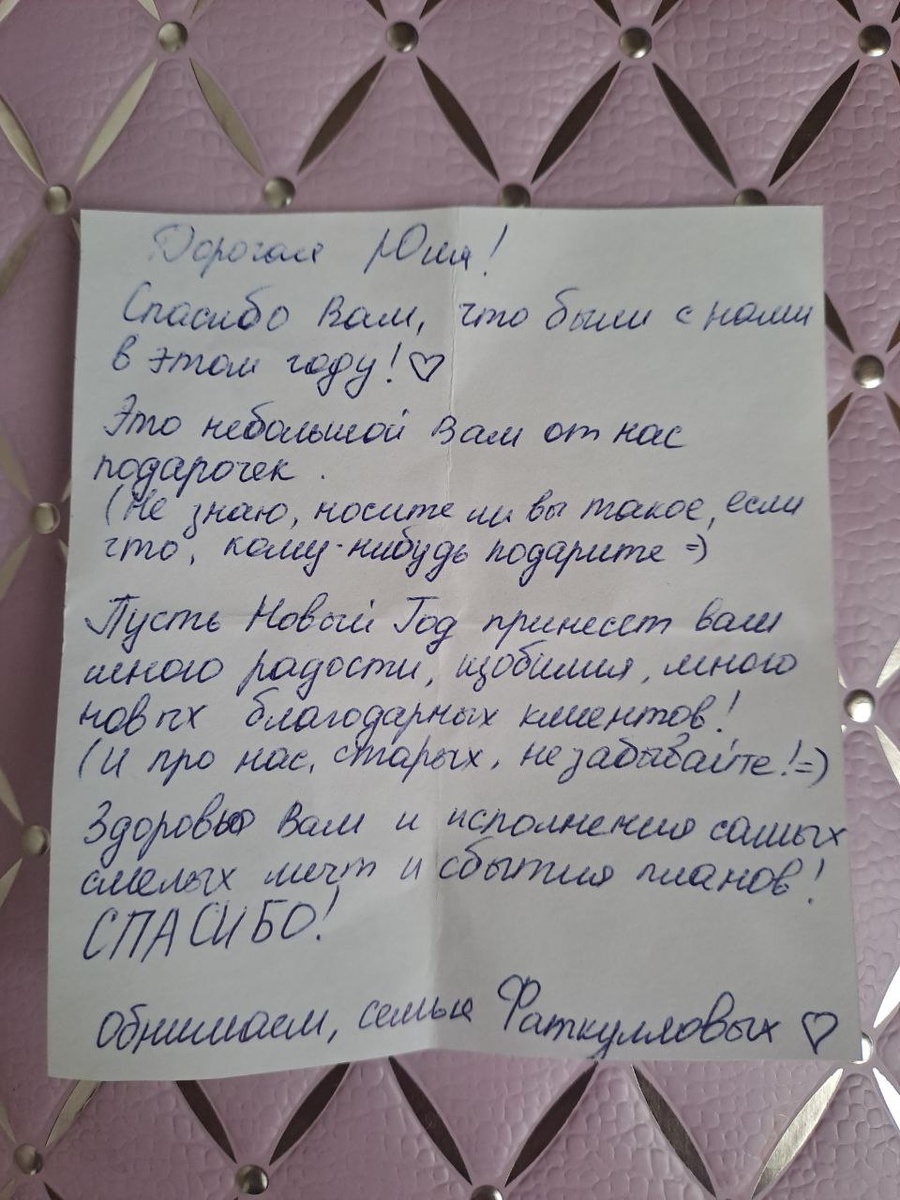 Дорогая Юлия!
Спасибо Вам, что были с нами
в этом году! ♡
Это небольшой Вам от нас
подарочек.
(Не знаю, носите ли вы такое, если
что, кому-нибудь подарите =)
Пусть Новый Год принесет вам
много радости, изобилия, много
новых благодарных клиентов!
(И про нас, старых, не забывайте! =)
Здоровья Вам и исполнения самых
смелых мечт и сбытия планов!
СПАСИБО!
Обнимаем, семья Фаткулловых ♡